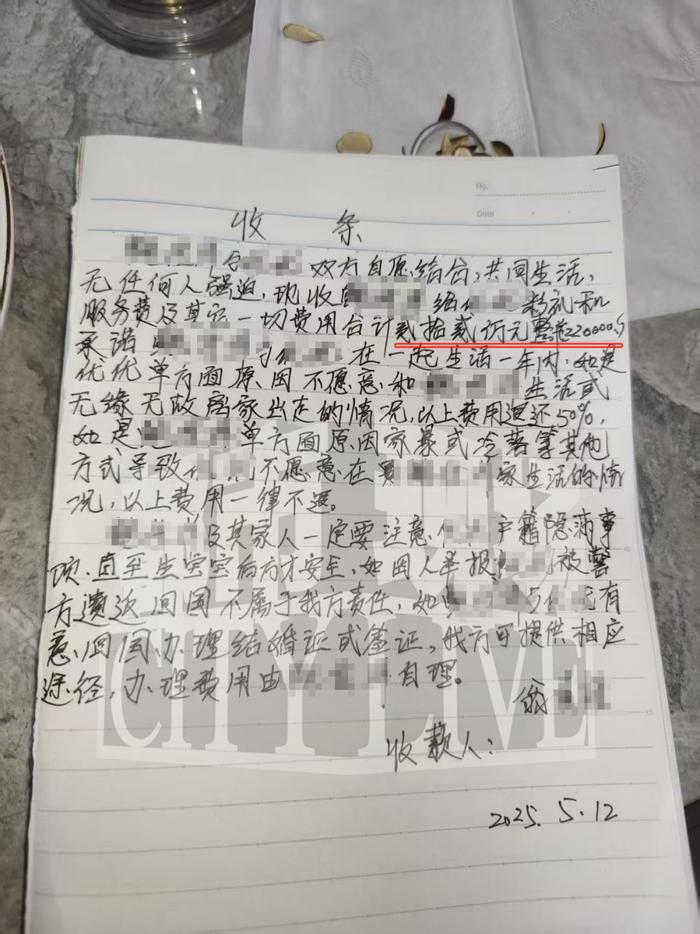 No.
Date
收 条
与 双方自愿结合,共同生活,
无任何人强迫,现收 给 彩礼和
服务费及其它一切费用合计贰拾贰万元整 220000
承诺 与 在一起生活一年内,如是
优优单方面原因不愿意和 生活或
无缘无故离家出走的情况,以上费用退还50%,
如是 单方面原因家暴或冷落等其他
方式导致 不愿意在 家生活的情
况,以上费用一律不退。
及其家人一定要注意 户籍隐满事
项,直至生宝宝后方才安全,如因人举报 被警
方遣返回国不属于我方责任,如 有
意回国办理结婚证或签证,我方可提供相应
途径,办理费用由 自理。
收款人:
2025.5.12
CITY LIVE